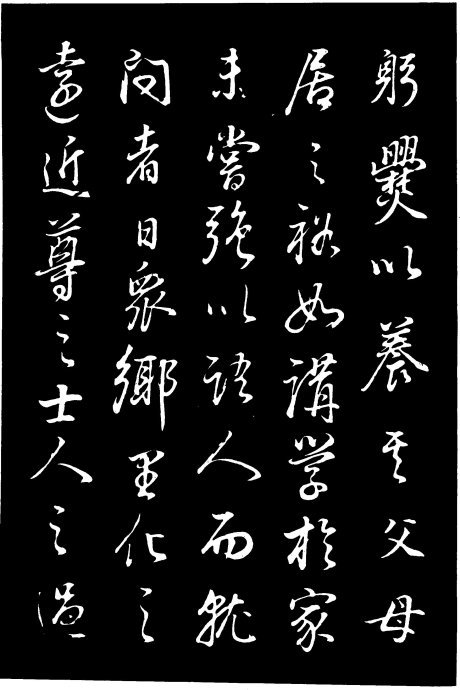 躬爨以養其父母
居之裕如講学於家
未嘗強以語人而就
问者日眾鄉里化之
遠近尊之士人之過